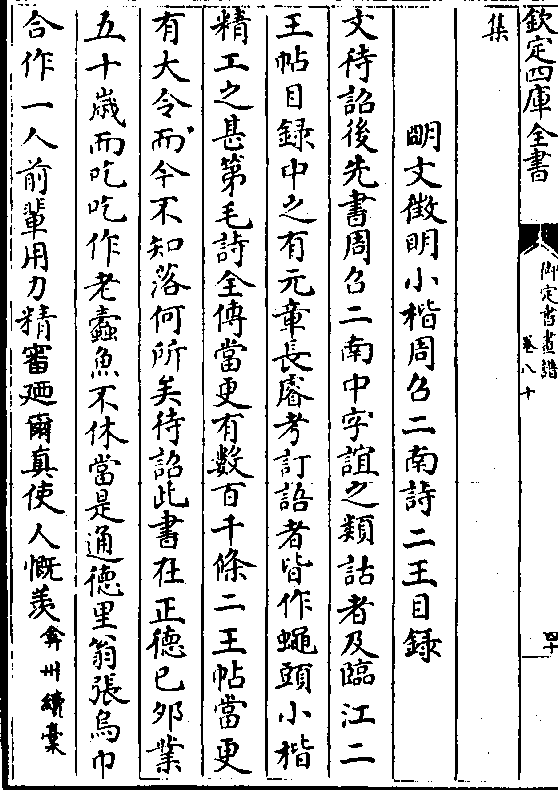 欽定四庫全書
御定書畫譜
卷八十
四十
集
明文徴明小楷周召二南詩二王目録
文待詔後先書周召二南中字誼之類詁者及臨江二
王帖目録中之有元章長睿考訂語者皆作蠅頭小楷
精工之甚第毛詩全傳當更有數百千條二王帖當更
有大令而今不知落何所矣待詔此書在正德己夘業
五十歲而吃吃作老蠧魚不休當是通德里翁張烏巾
合作一人前輩用力精審廼爾真使人慨羡弇州續藁